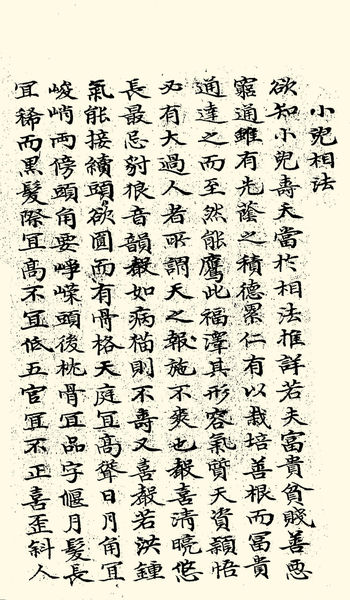 小兒相法
欲知小兒壽夭當於相法推詳若夫富貴貧賤善惡
窮通雖有先蔭之積德累仁有以栽培善根而富貴
通達之而至然能鷹此福澤其形容氣質天資頴悟
必有大過人者所謂天之報施不爽也聲喜清曉悠
長最忌豺狼音韻聲如病猫則不壽又喜聲若洪鍾
氣能接續頭欲圓而有骨格天庭宜高聳日月角宜
峻峭兩傍頭角要崢嶸頭後枕骨宜品字偃月髮長
宜稀而黑髮際宜高不宜低五官宜不正喜歪斜人